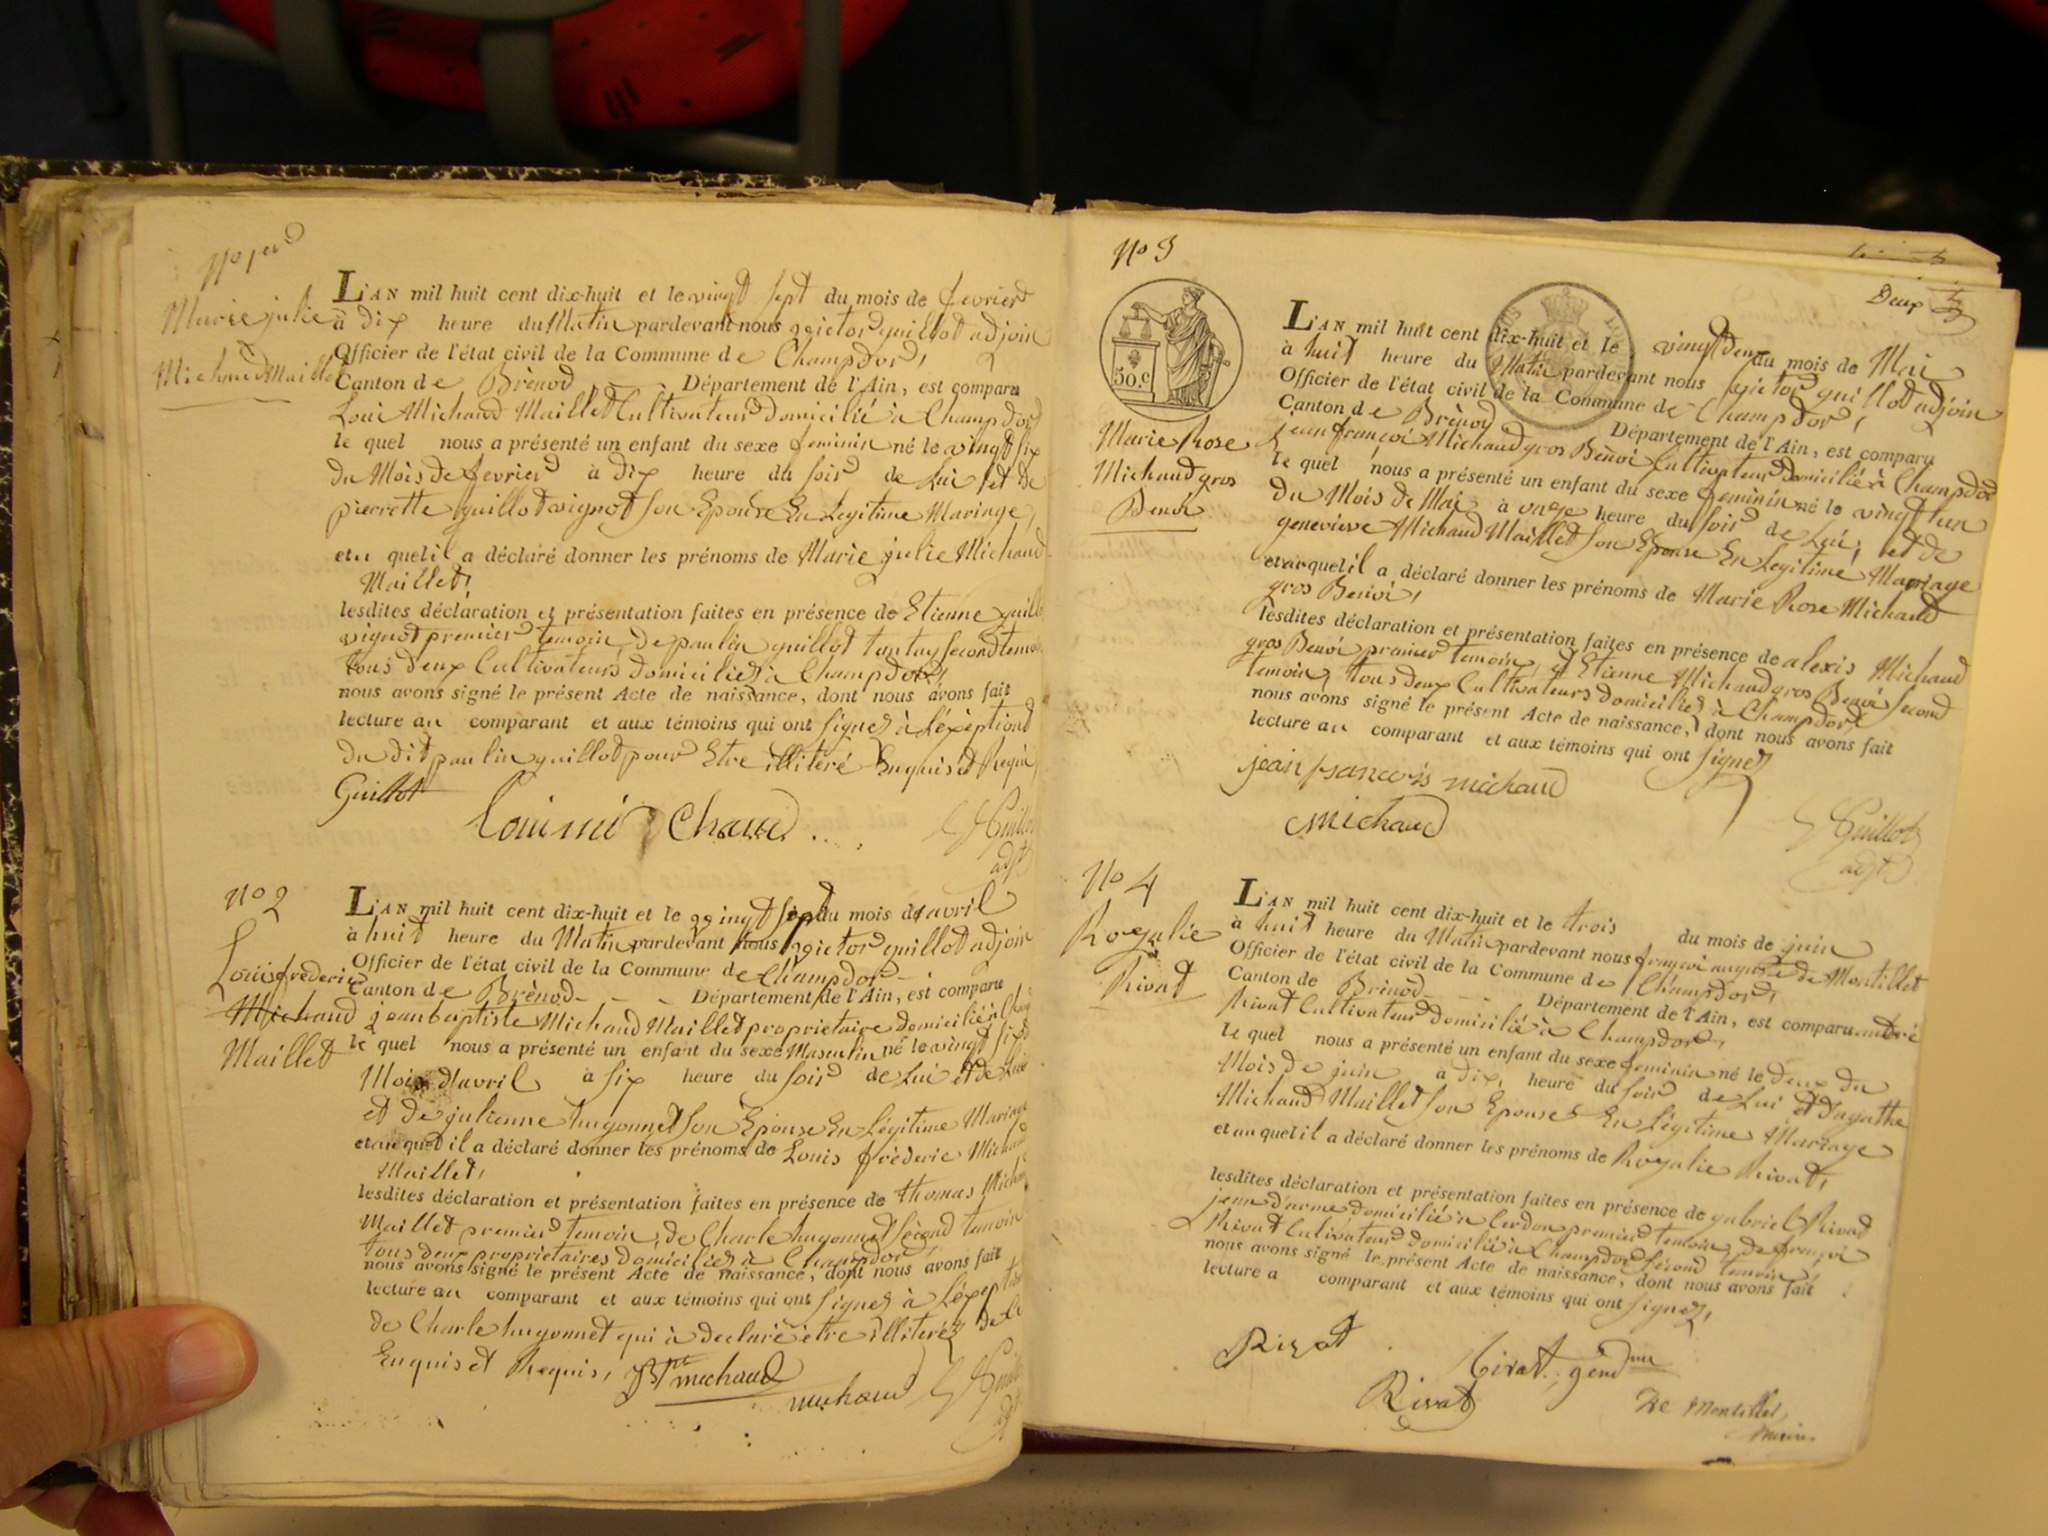 No 1er
Marie julie
Michaud Maillet
L'AN mil huit cent dix-huit et le vingt sept du mois de fevrier
à dix heure du Matin pardevant nous victor guillot adjoin
Officier de l'état civil de la Commune de Champdor,
Canton de Brènod Département de l'Ain, est comparu
Loui Michaud Maillet Cultivateur domicilié à Champdor
le quel nous a présenté un enfant du sexe feminin né le vingt six
du Mois de fevrier à dix heure du soir de Lui et de
pierrette guillot vignot son Epouse En Legitime Mariage,
et au quel il a déclaré donner les prénoms de Marie julie Michaud
Maillet,
lesdites déclaration et présentation faites en présence de Etienne guillot
vignot premier temoin, de paulin guillot tantay second temoin
tous deux Cultivateurs domiciliés à Champdor,
nous avons signé le présent Acte de naissance, dont nous avons fait
lecture au comparant et aux témoins qui ont signés à l'éxèption
du dit paulin guillot pour Etre illitéré Enquis et Requi,
Guillot
Loui mi chaud
Guillot
adjt
No 2
Louis frèderic
Michaud
Maillet
L'AN mil huit cent dix-huit et le vingt sept du mois d'avril
à huit heure du Matin pardevant nous victor guillot adjoin
Officier de l'état civil de la Commune de Champdor
Canton de Brènod Département de l'Ain, est comparu
jean baptiste Michaud Maillet proprietaire domicilié à Champ
le quel nous a présenté un enfant du sexe Masculin né le vingt six
Mois d'avril à six heure du soir de Lui et de
et de julienne hugonnet son Epouse En Légitime Mariage
et au quel il a déclaré donner les prénoms de Louis frèderic Michaud
Maillet,
lesdites déclaration et présentation faites en présence de thomas Michaud
Maillet premier temoin, de Charle hugonnet sècond temoin
tous deux proprietaires domiciliés à Champdor
nous avons signé le présent Acte de naissance, dont nous avons fait
lecture au comparant et aux témoins qui ont signés à l'éxèption
de Charle hugonnet qui à declaré être illiterés de ce
Enquis et Requis, JBte michaud
michaud
Guillot
adjt
No 3
Deux
50.c
Marie Rose
Michaud gros
Benoi
L'AN mil huit cent dix-huit et le vingt deux du mois de Mai
à huit heure du Matin pardevant nous victor guillot adjoin
Officier de l'état civil de la Commune de Champdor,
Canton de Brènod Département de l'Ain, est comparu
jean françoi Michaud gros Benoi Cultivateur domicilié à Champdor
le quel nous a présenté un enfant du sexe feminin né le vingt un
du Mois de Mai à onze heure du soir de Lui, et de
genevieve Michaud Maillet son Epouse En Legitime Mariage
et au quel il a déclaré donner les prénoms de Marie Rose Michaud
gros Benoi,
lesdites déclaration et présentation faites en présence de alexis Michaud
gros Benoi premier temoin, d'Etienne Michaud gros Benoi second
temoin, tous deux Cultivateurs domiciliés à Champdor,
nous avons signé le présent Acte de naissance, dont nous avons fait
lecture au comparant et aux témoins qui ont signés
jean francois michaud
Michaud
Guillot
adjt
No 4
Rozalie
Rivat
L'AN mil huit cent dix-huit et le trois du mois de juin
à huit heure du Matin pardevant nous françoi auguste de Montillet
Officier de l'état civil de la Commune de Champdor,
Canton de Brènod Département de l'Ain, est comparu andré
Rivat Cultivateur domicilié à Champdor,
le quel nous a présenté un enfant du sexe feminin né le deux du
Mois de juin à dix heure du soir de Lui et d'agathe
Michaud Maillet son Epouse En Légitime Mariage
et au quel il a déclaré donner les prénoms de Rozalie Rivat,
lesdites déclaration et présentation faites en présence de gabriel Rivat
jean d'arme domicilié à Cerdon premier temoin, de françoi
Rivat Cultivateur domicilié à Champdor sècond temoin,
nous avons signé le présent Acte de naissance, dont nous avons fait
lecture a comparant et aux témoins qui ont signés,
Rivat
Rivat, gendme
Rivat
De Montillet
Maire